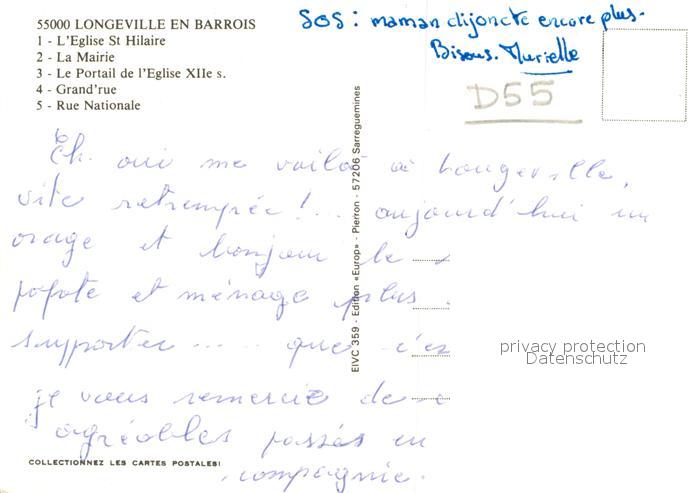 55000 LONGEVILLE EN BARROIS
1 - L'Eglise St Hilaire
2 - La Mairie
3 - Le Portail de l'Eglise XIIe s.
4 - Grand'rue
5 - Rue Nationale
SOS : maman disjoncte encore plus.
Bisous. Murielle
D55
Eh oui me voilà à Longeville,
vite retrempée !... aujourd'hui un
orage et bonjour le
popote et ménage plus
supporter ..... que c'es
je vous remercie de
agréables passés en
compagnie.
EIVC 359 - Edition «Europ» - Pierron - 57206 Sarreguemines
COLLECTIONNEZ LES CARTES POSTALES!
privacy protection
Datenschutz